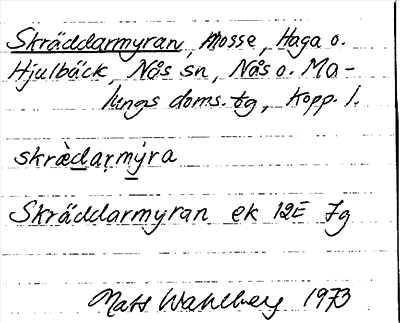 Skräddarmyran, mosse, Haga o.
Hjulbäck, Nås sn, Nås o. Ma-
lungs doms. tg, Kopp. l.
skrædarmýra
Skräddarmyran ek 12E Jg
Mats Wahlberg 1973